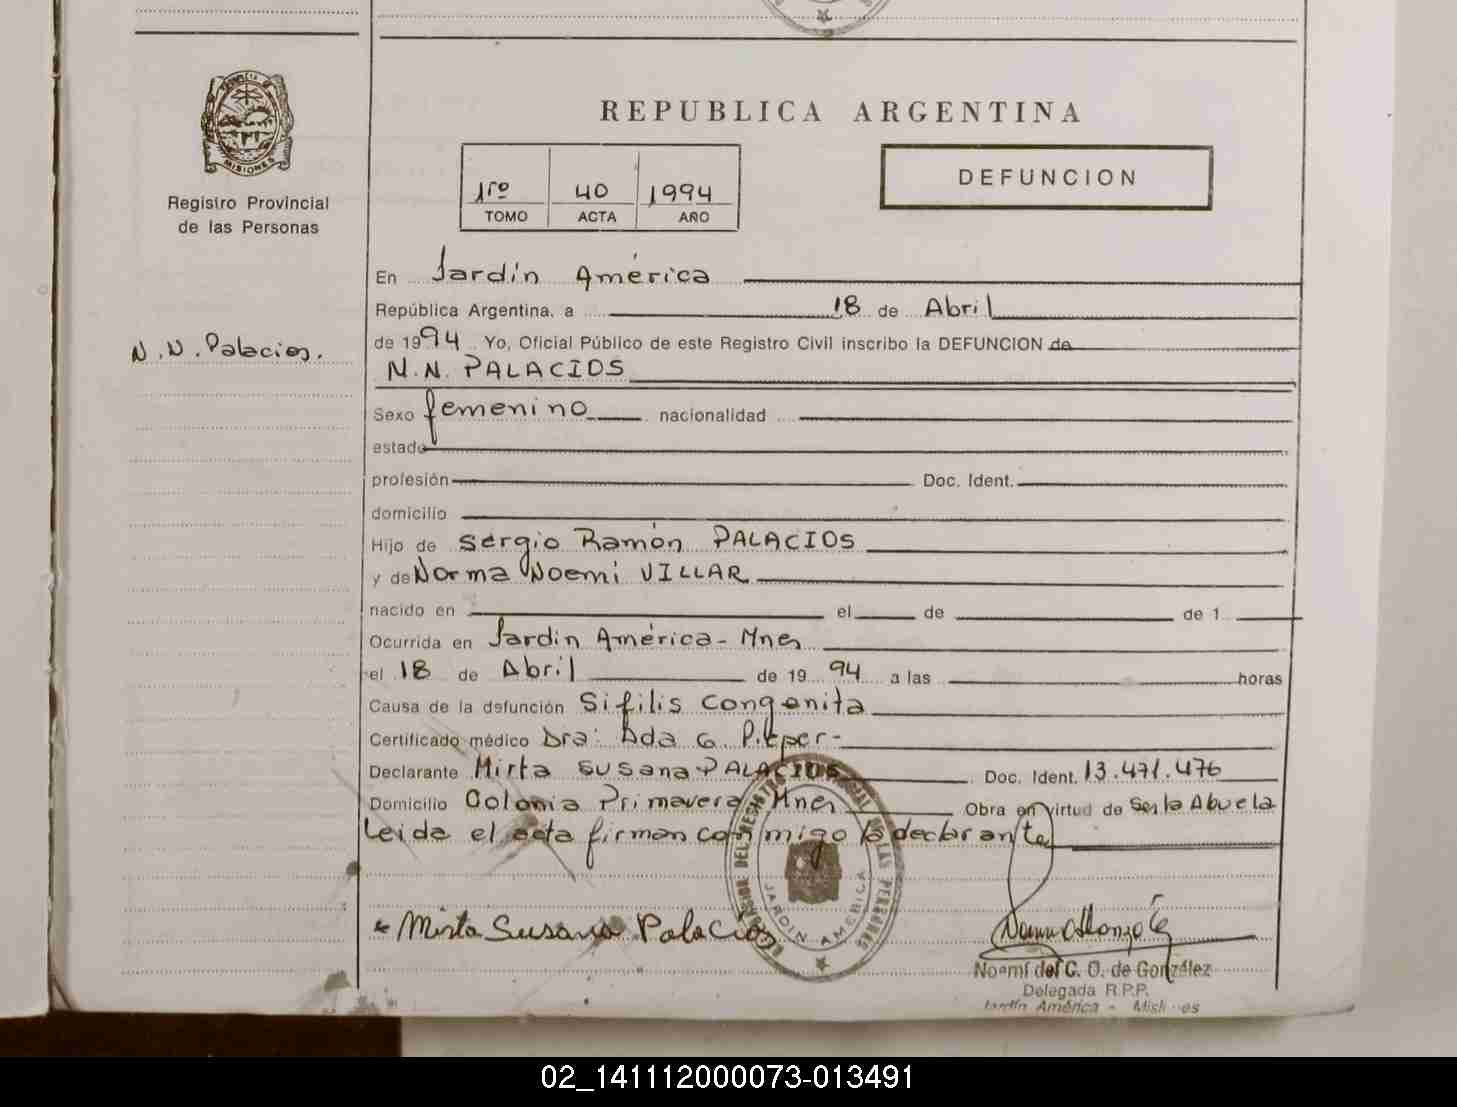 MISIONES
Registro Provincial
de las Personas
N.N. Palacios.
REPUBLICA ARGENTINA
1ro 40 1994
TOMO ACTA AÑO
DEFUNCION
En Jardín América
República Argentina, a 18 de Abril
de 1994 Yo, Oficial Público de este Registro Civil inscribo la DEFUNCION de
N.N. PALACIOS
Sexo femenino nacionalidad
estado
profesión Doc. Ident.
domicilio
Hijo de Sergio Ramón PALACIOS
y de Norma Noemi VILLAR
nacido en el de de 1
Ocurrida en Jardin América - Mnes
el 18 de Abril de 19 94 a las horas
Causa de la defunción Sifilis Congenita
Certificado médico Dra: Ada G. Pieper -
Declarante Mirta Susana PALACIOS Doc. Ident. 13.471.476
Domicilio Colonia Primavera Mnes Obra en virtud de Ser la Abuela
Leida el acta firman conmigo la declarante
JARDIN AMERICA
Mirta Susana Palacios
Noemí del C. O. de González
Delegada R.P.P.
Jardín América - Misiones
02_141112000073-013491